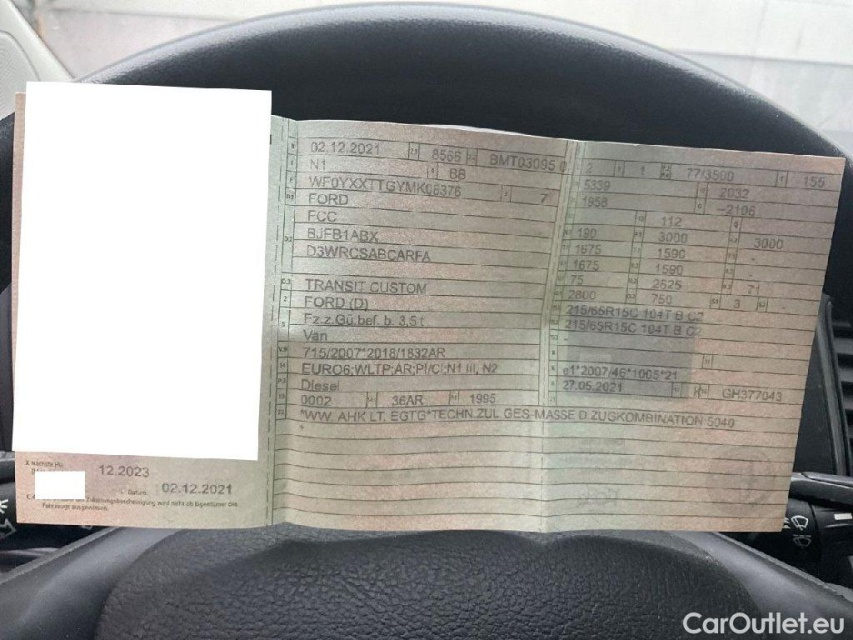 02.12.2021 8566 BMT03095 0
N1 BB
WF0YXXTTGYMK06376 7
FORD
FCC
BJFB1ABX
D3WRCSABCARFA
TRANSIT CUSTOM
FORD (D)
Fz.z.Gü.bef. b. 3,5 t
Van
715/2007*2018/1832AR
EURO6;WLTP;AR;PI/CI;N1 III, N2
Diesel
0002 36AR 1995
*WW. AHK LT. EGTG*TECHN.ZUL GES-MASSE D.ZUGKOMBINATION 5040
2 1 77/3500 155
5339 2032
1958 -2106
112
190 3000 3000
1675 1590 -
1675 1590 -
75 2525 71
2800 750 3 -
215/65R15C 104T B C2
215/65R15C 104T B C2
-
e1*2007/46*1005*21
27.05.2021 GH377043
12.2023
Datum: 02.12.2021
Fahrzeugs ausgewiesen.
CarOutlet.eu